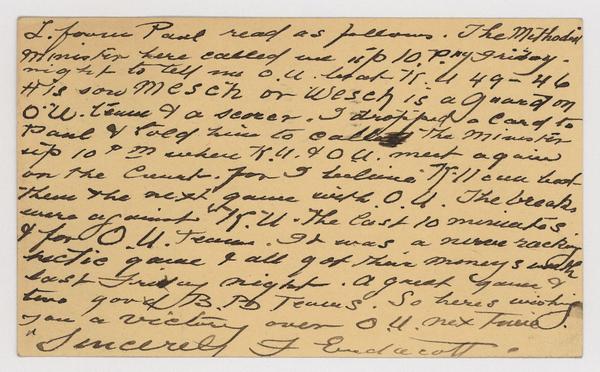 L. from Paul read as follows. The Methodist
Minister here called me up 10 P.M Friday.
night to tell me O.U. beat K.U 49-46
His son Mesch or Wesch is a guard on
O.U. team & a scorer. I dropped a card to
Paul & told him to call the Minister
up 10 PM when K.U. & O.U. meet again
on the Court. for I believe K.U can beat
them the next game with O.U. The breaks
were against K.U. the last 10 miniates
& for O.U. Team. It was a nerve racking
hectic game & all got their moneys worth
last Friday night. A great game &
two good B.B Teams. So heres wishing
you a victory over O.U. nex Time.
" Sincerely F Endacott.